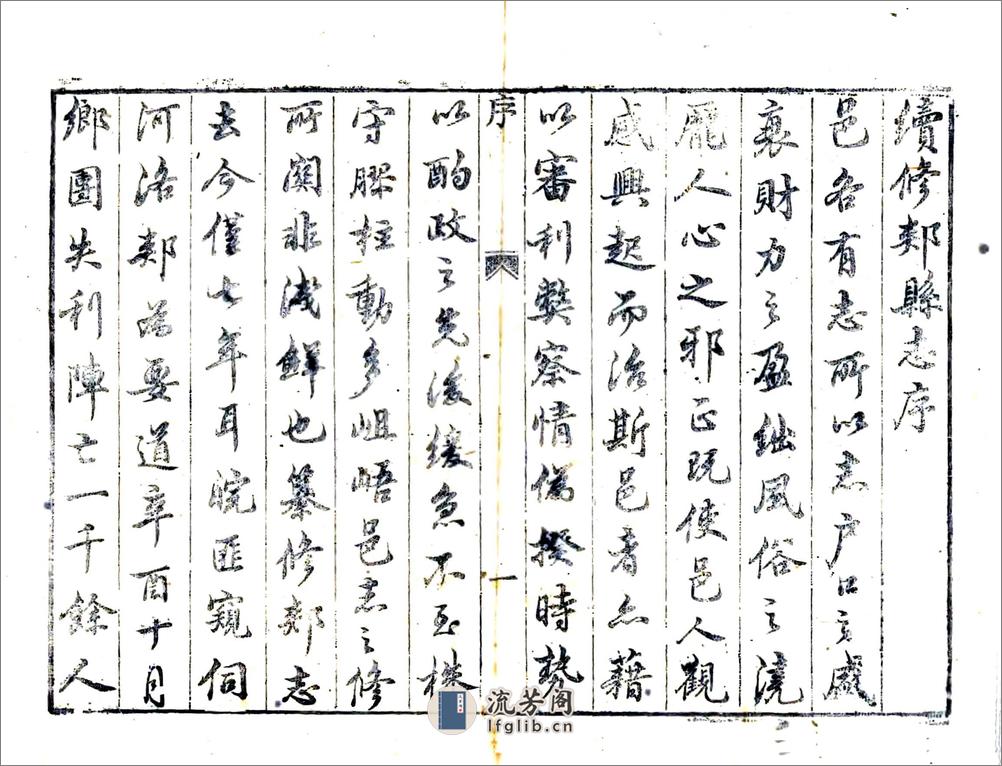 續修郟縣志序
邑各有志所以志户口之盛
衰財力之盈絀風俗之澆
龎人心之邪正既使邑人觀
感興起而治斯邑者亦藉
以審利獘察情僞揆時勢
序
一
以酌政之先後緩急不至株
守膠柱動多岨峿邑志之修
所關非淺鮮也纂修郟志
去今僅七年耳皖匪窺伺
河洛郟為要道辛酉十月
鄉團失利陣亡一千餘人
流芳阁
lfglib.cn